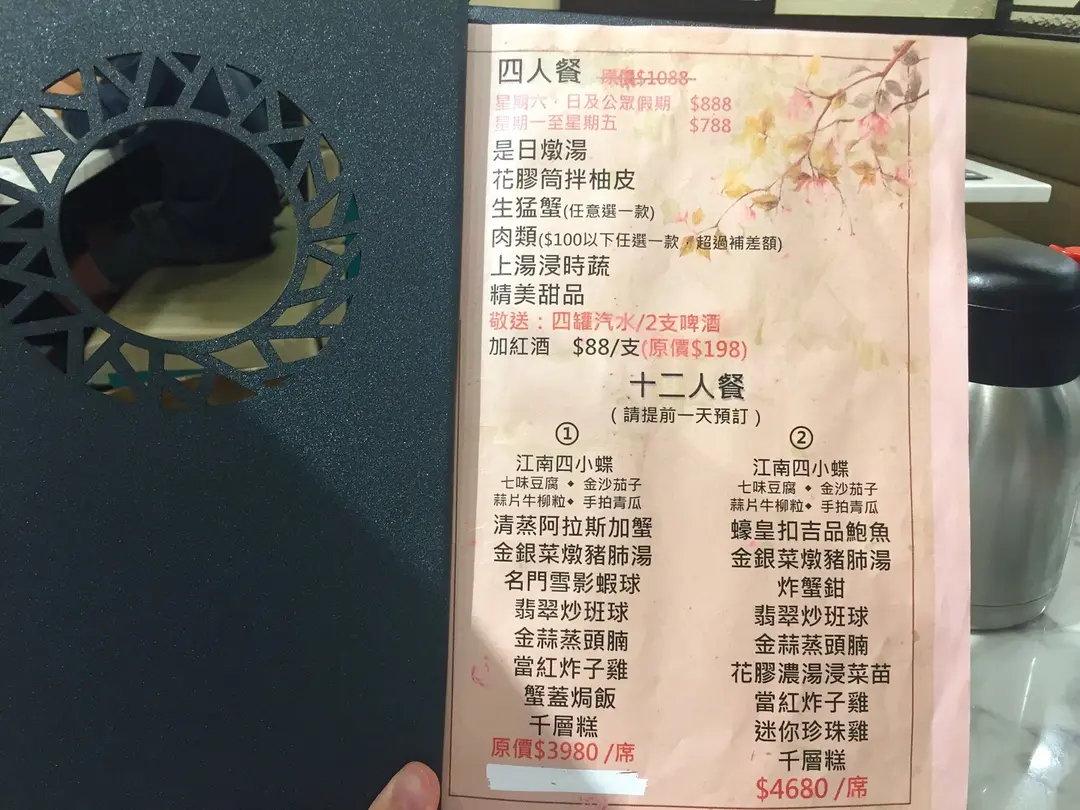 四人餐 原價$1088
星期六,日及公眾假期 $888
星期一至星期五 $788
是日燉湯
花膠筒拌柚皮
生猛蟹(任意選一款)
肉類($100以下任選一款,超過補差額)
上湯浸時蔬
精美甜品
敬送:四罐汽水/2支啤酒
加紅酒 $88/支(原價$198)
十二人餐
(請提前一天預訂)
①
江南四小蝶
七味豆腐 • 金沙茄子
蒜片牛柳粒• 手拍青瓜
清蒸阿拉斯加蟹
金銀菜燉豬肺湯
名門雪影蝦球
翡翠炒班球
金蒜蒸頭腩
當紅炸子雞
蟹蓋焗飯
千層糕
原價$3980 /席
②
江南四小蝶
七味豆腐 • 金沙茄子
蒜片牛柳粒• 手拍青瓜
蠔皇扣吉品鮑魚
金銀菜燉豬肺湯
炸蟹鉗
翡翠炒班球
金蒜蒸頭腩
花膠濃湯浸菜苗
當紅炸子雞
迷你珍珠雞
千層糕
$4680 /席